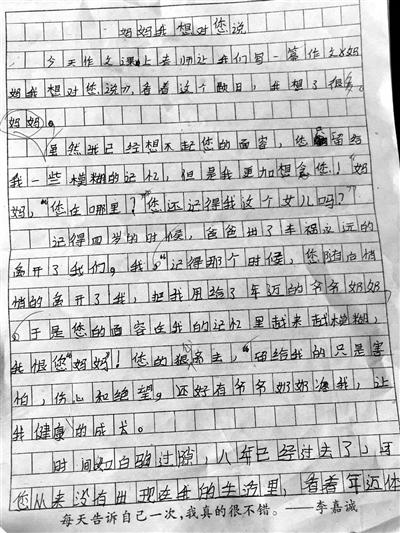 妈妈我想对您说
今天作文课上老师让我们写一篇作文《妈
妈我想对您说》,看着这个题目,我想了很多。
妈妈。
虽然我已经想不起您的面容,您只留给
我一些模糊的记忆,但是我更加想念您!妈
妈,“您在哪里?您还记得我这个女儿吗?”
记得四岁的时候,爸爸出了车祸永远的
离开了我们。我记得那个时候,您随后悄
悄的离开了我,把我甩给了年迈的爷爷奶奶
,于是您的面容在我的记忆里越来越模糊,
我恨您“妈妈”!您的狠离去,留给我的只是害
怕,伤心和绝望。还好有爷爷奶奶疼我,让
我健康的成长。
时间如白驹过隙,八年已经过去了,可
您从来没有出现在我的生活里,看着年迈体
每天告诉自己一次,我真的很不错。——李嘉诚